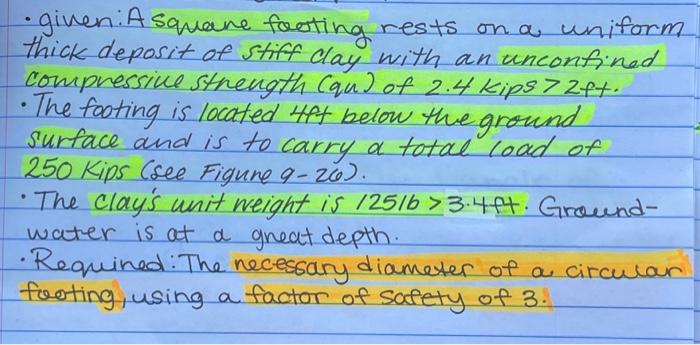 • given: A square footing rests on a uniform
thick deposit of stiff clay with an unconfined
compressive strength (qu) of 2.4 kips > 2ft.
• The footing is located 4ft below the ground
surface and is to carry a total load of
250 Kips (see Figure 9-26).
• The clay's unit weight is 125lb > 3.4ft. Ground-
water is at a great depth.
• Required: The necessary diameter of a circular
footing, using a factor of safety of 3.